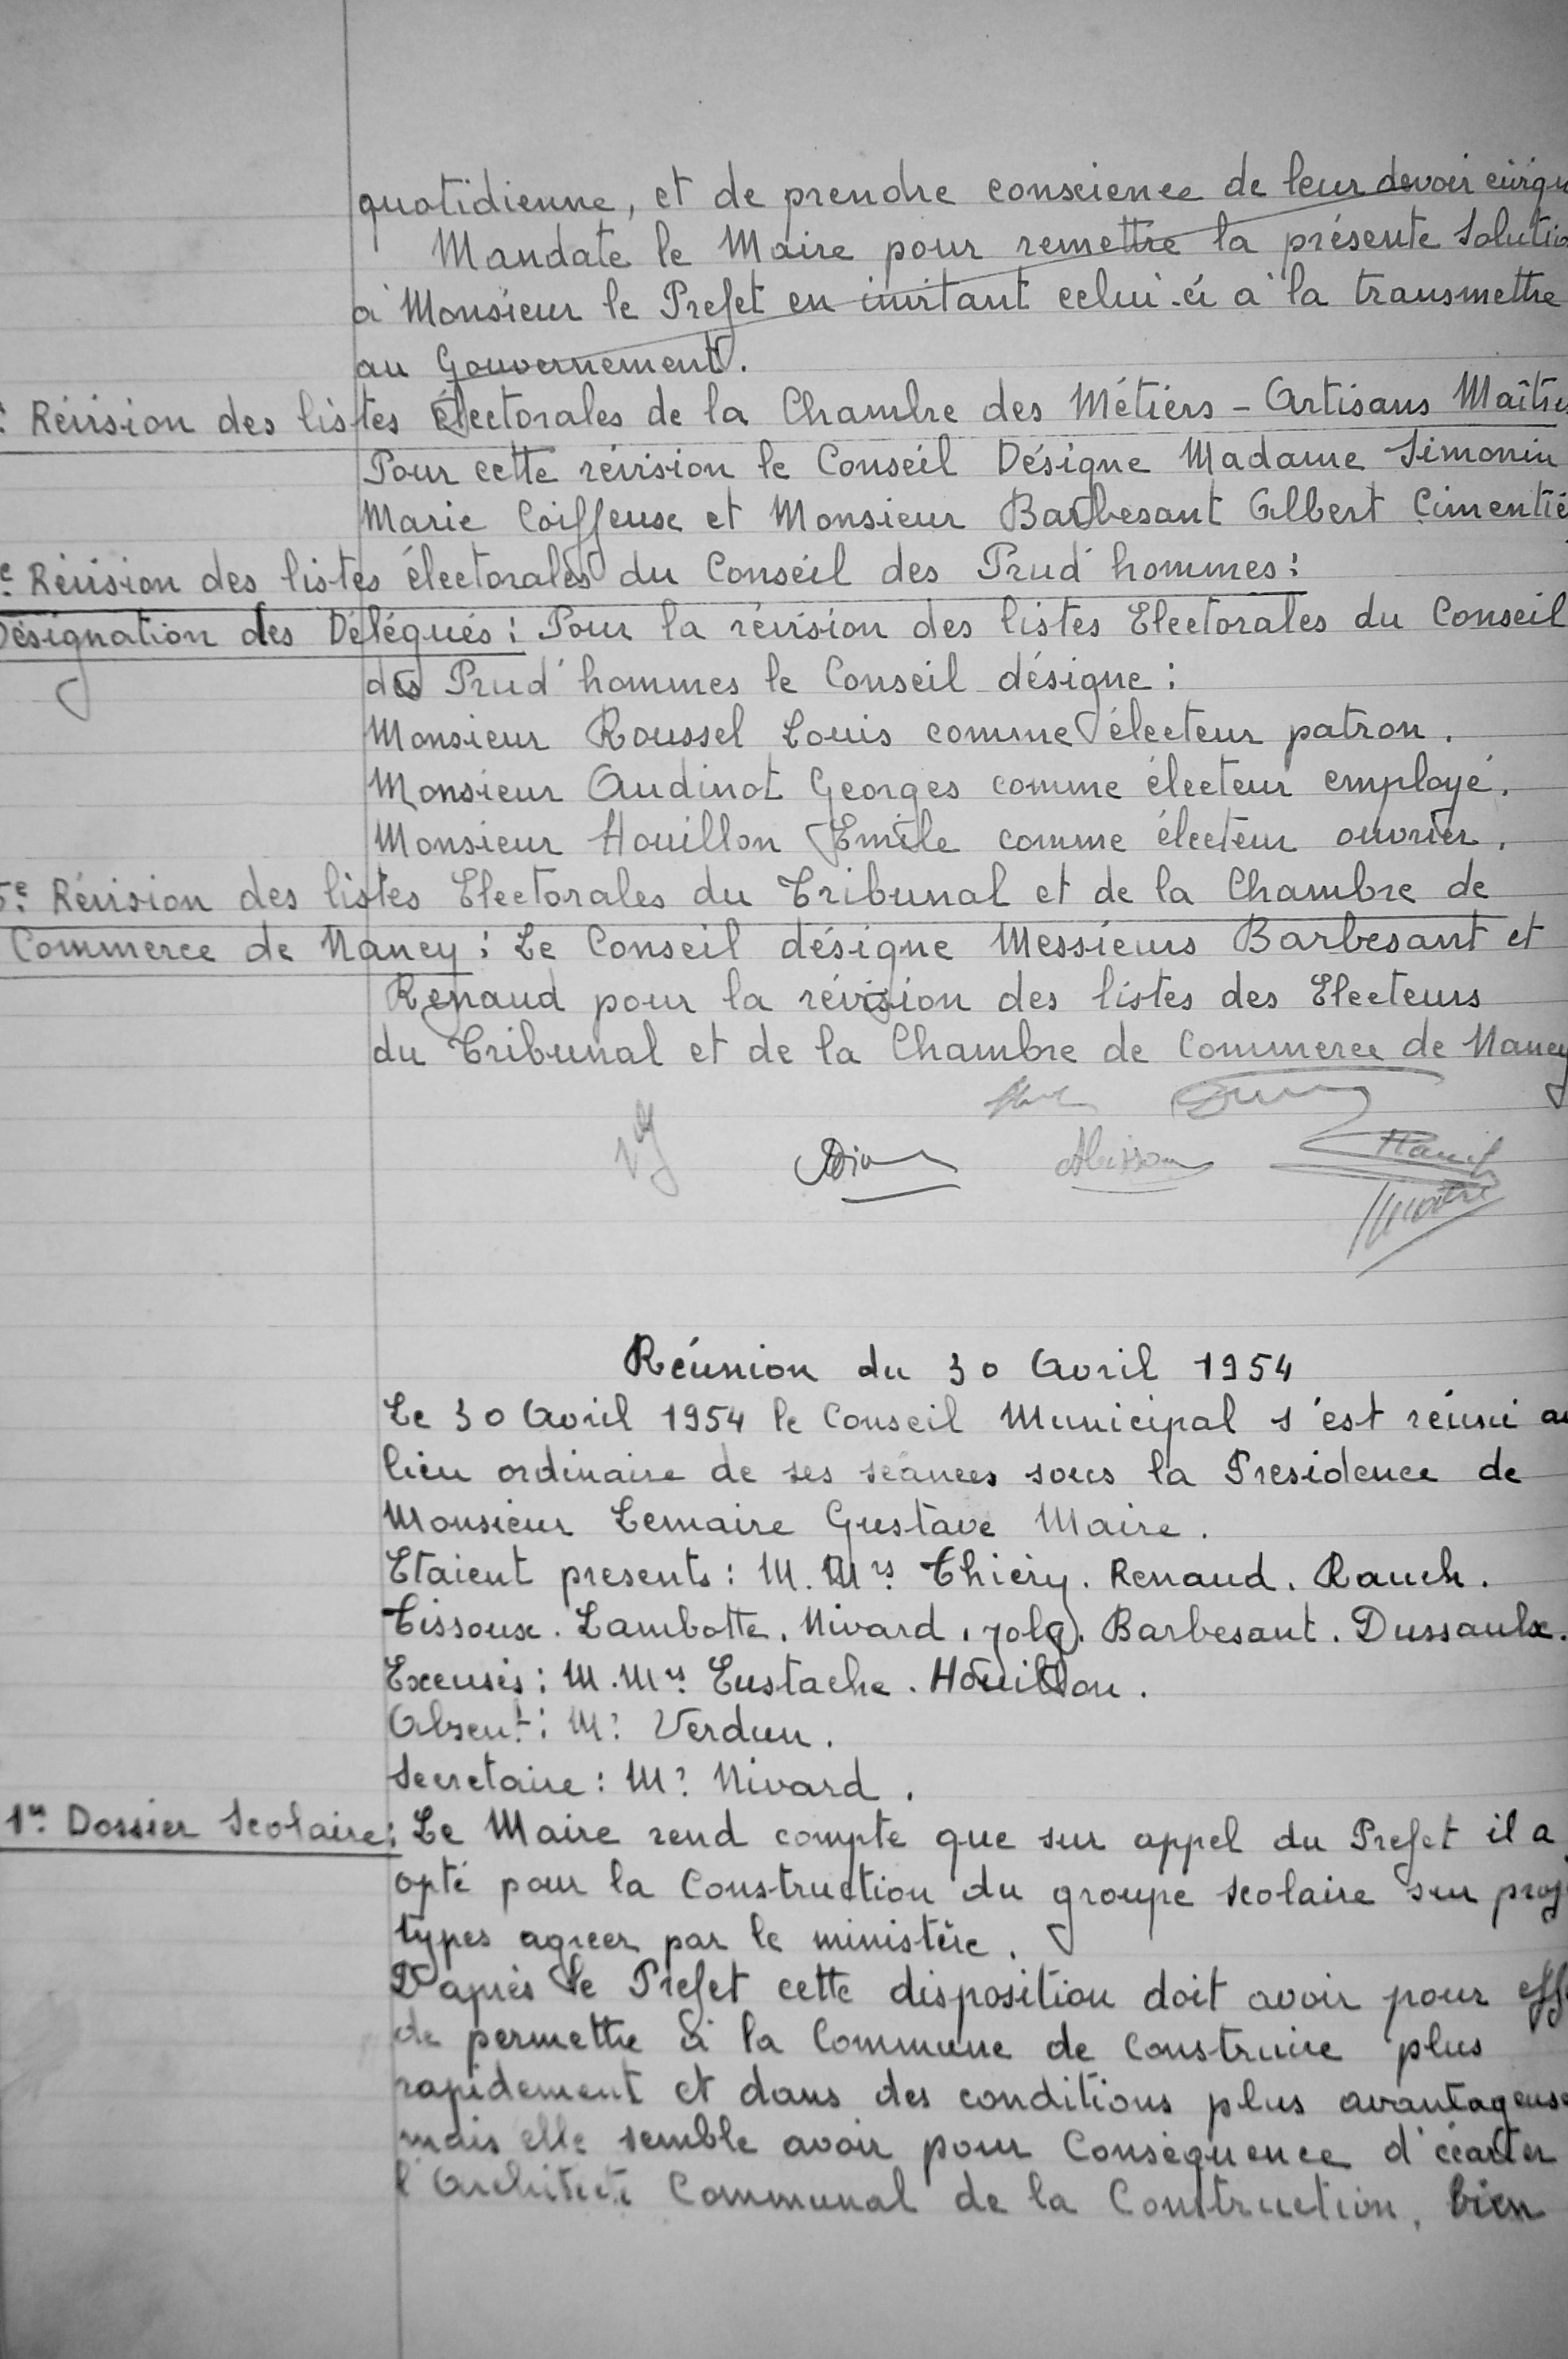 quotidienne, et de prendre conscience de leur devoir civiqu
Mandate le Maire pour remettre la présente Solutio
à Monsieur le Prefet en invitant celui-ci à la transmettre
au Gouvernement.
Révision des listes électorales de la Chambre des Métiers - Artisans Maîtres
Pour cette révision le Conseil Désigne Madame Simonin
Marie Coiffeuse et Monsieur Barbesant Albert Cimentie
e: Révision des listes électorales du Conseil des Prud'hommes:
Désignation des Délégués: Pour la révision des listes Electorales du Conseil
des Prud'hommes le Conseil désigne:
Monsieur Roussel Louis comme électeur patron.
Monsieur Audinot Georges comme électeur employé.
Monsieur Houillon Emile comme électeur ouvrier.
5e: Révision des listes Electorales du Tribunal et de la Chambre de
Commerce de Nancy: Le Conseil désigne Messieurs Barbesant et
Renaud pour la révision des listes des Electeurs
du Tribunal et de la Chambre de Commerce de Nancy
Réunion du 30 Avril 1954
Le 30 Avril 1954 le Conseil Municipal s'est réuni au
lieu ordinaire de ses séances sous la Presidence de
Monsieur Lemaire Gustave Maire.
Etaient presents: M. Mrs Thiéry. Renaud. Rauch.
Tissoux. Lambotte. Nivard. Barbesant. Dussaulx.
Excusés: M. Mrs Eustache. Houillon.
Absent: Mr Verdun.
Secretaire: Mr Nivard.
1er Dossier Scolaire: Le Maire rend compte que sur appel du Prefet il a
opté pour la Construction du groupe scolaire sur proj
types agreer par le ministère.
D'après le Prefet cette disposition doit avoir pour eff
de permettre à la Commune de Construire plus
rapidement et dans des conditions plus avantageuse
mais elle semble avoir pour Conséquence d'écarter
l'Architecte Communal de la Construction, bien